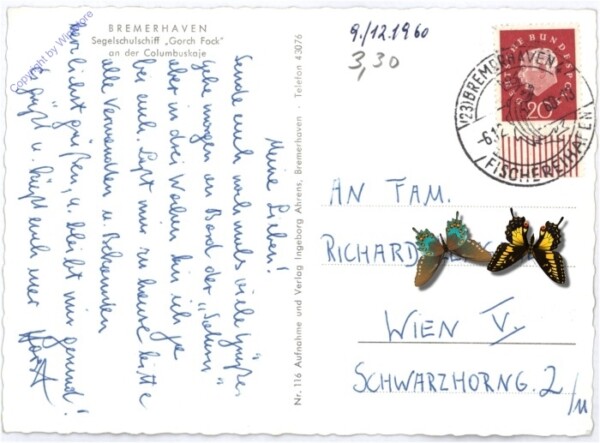 BREMERHAVEN
Segelschulschiff „Gorch Fock"
an der Columbuskaje
Copyright by Wignstore
Meine Lieben!
Sende euch noch viele Grüße,
gehe morgen an Bord der „Saturn"
aber in drei Wochen bin ich ja
bei euch. Laßt mir zu hause bitte
alle Verwandten u. Bekannten
herzlichst grüßen, u. bleibt mir gesund!
Es grüßt u. küßt euch euer
Nr. 116 Aufnahme und Verlag Ingeborg Ahrens, Bremerhaven - Telefon 43076
9./12.1960
3,30
DEUTSCHE BUNDESPOST
20
(23) BREMERHAVEN
FISCHEREIHAFEN
AN FAM.
RICHARD
WIEN V.
SCHWARZHORNG. 2/